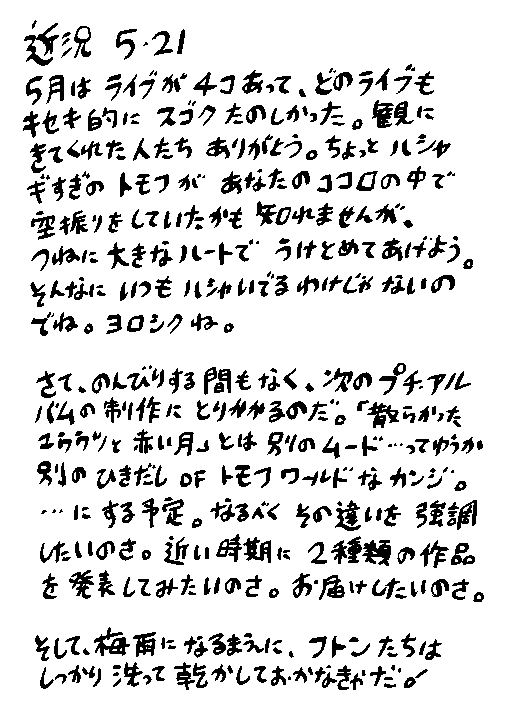 近況 5・21
5月は ライブが 4コあって、どのライブも
キセキ的に スゴク たのしかった。観に
きてくれた人たち ありがとう。ちょっと ハシャ
ギすぎの トモフが あなたのココロの中で
空振りをしていたかも 知れませんが、
つねに 大きなハートで うけとめてあげよう。
そんなに いつも ハシャいでるわけじゃ ないの
でね。ヨロシクね。
さて、のんびりする間もなく、次の プチ・アル
バムの制作に とりかかるのだ。「散らかった
ユウウツと 赤い月」とは 別の ムード…ってゆうか
別の ひきだし OF トモフワールドな カンジ。
…に する予定。なるべく その違いを 強調
したいのさ。近い時期に 2種類の作品
を 発表してみたいのさ。お届けしたいのさ。
そして、梅雨に なるまえに、フトン たちは
しっかり 洗って 乾かしておかなきゃだ!